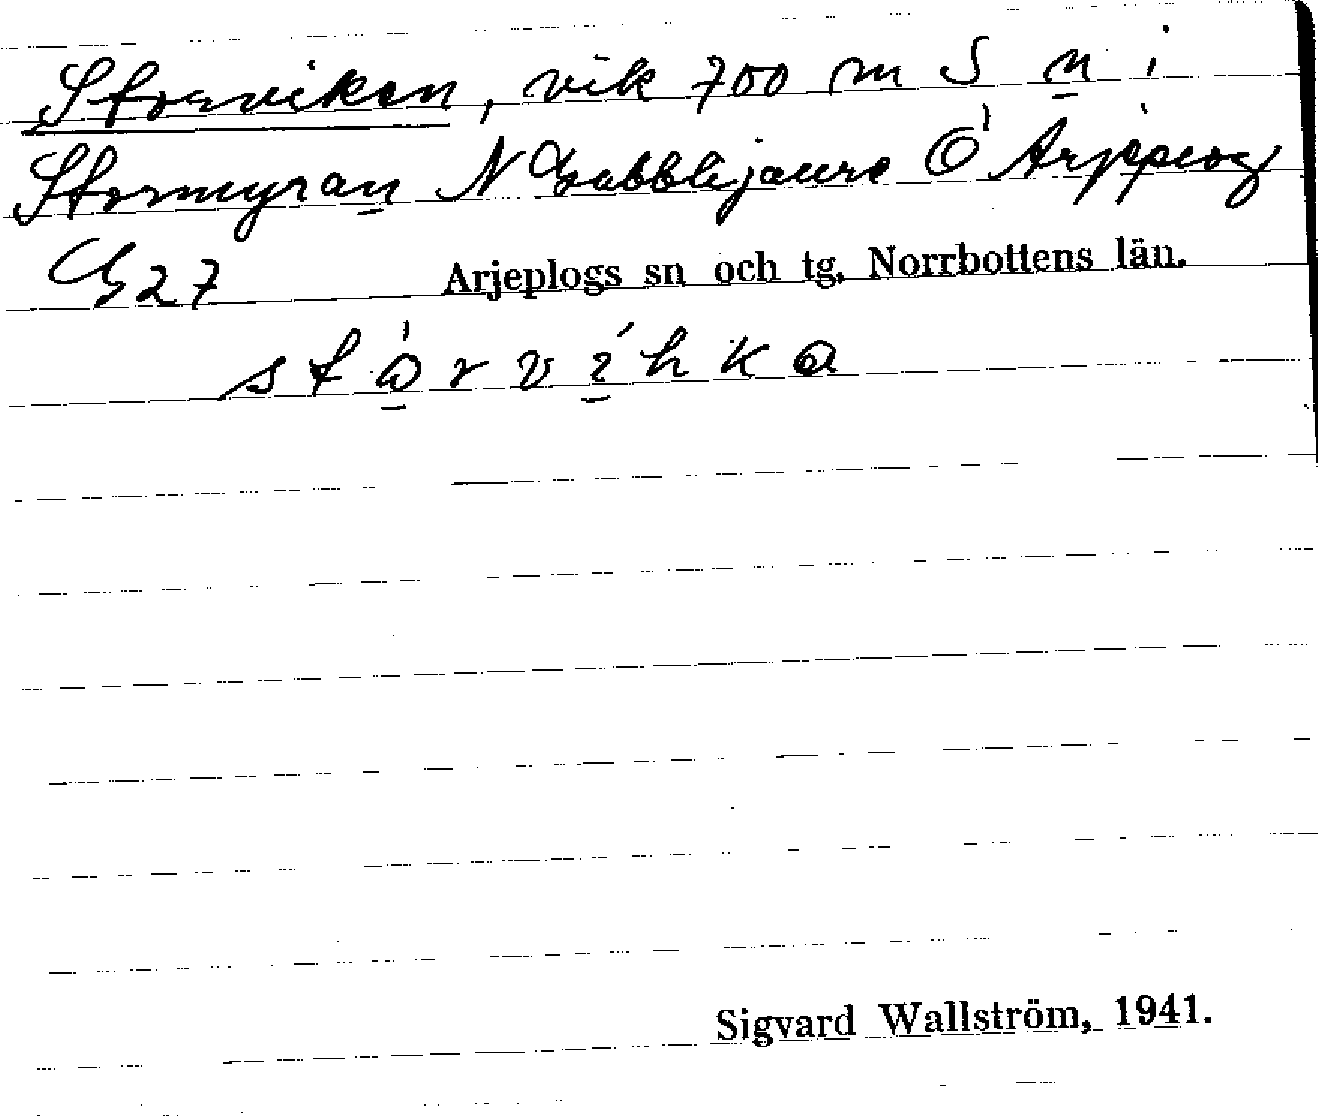 Storviken, vik 700 m S n i
Stormyran N Gabblijaure Ö Arjeplog
G27 Arjeplogs sn och tg, Norrbottens län.
stårvihka
Sigvard Wallström, 1941.